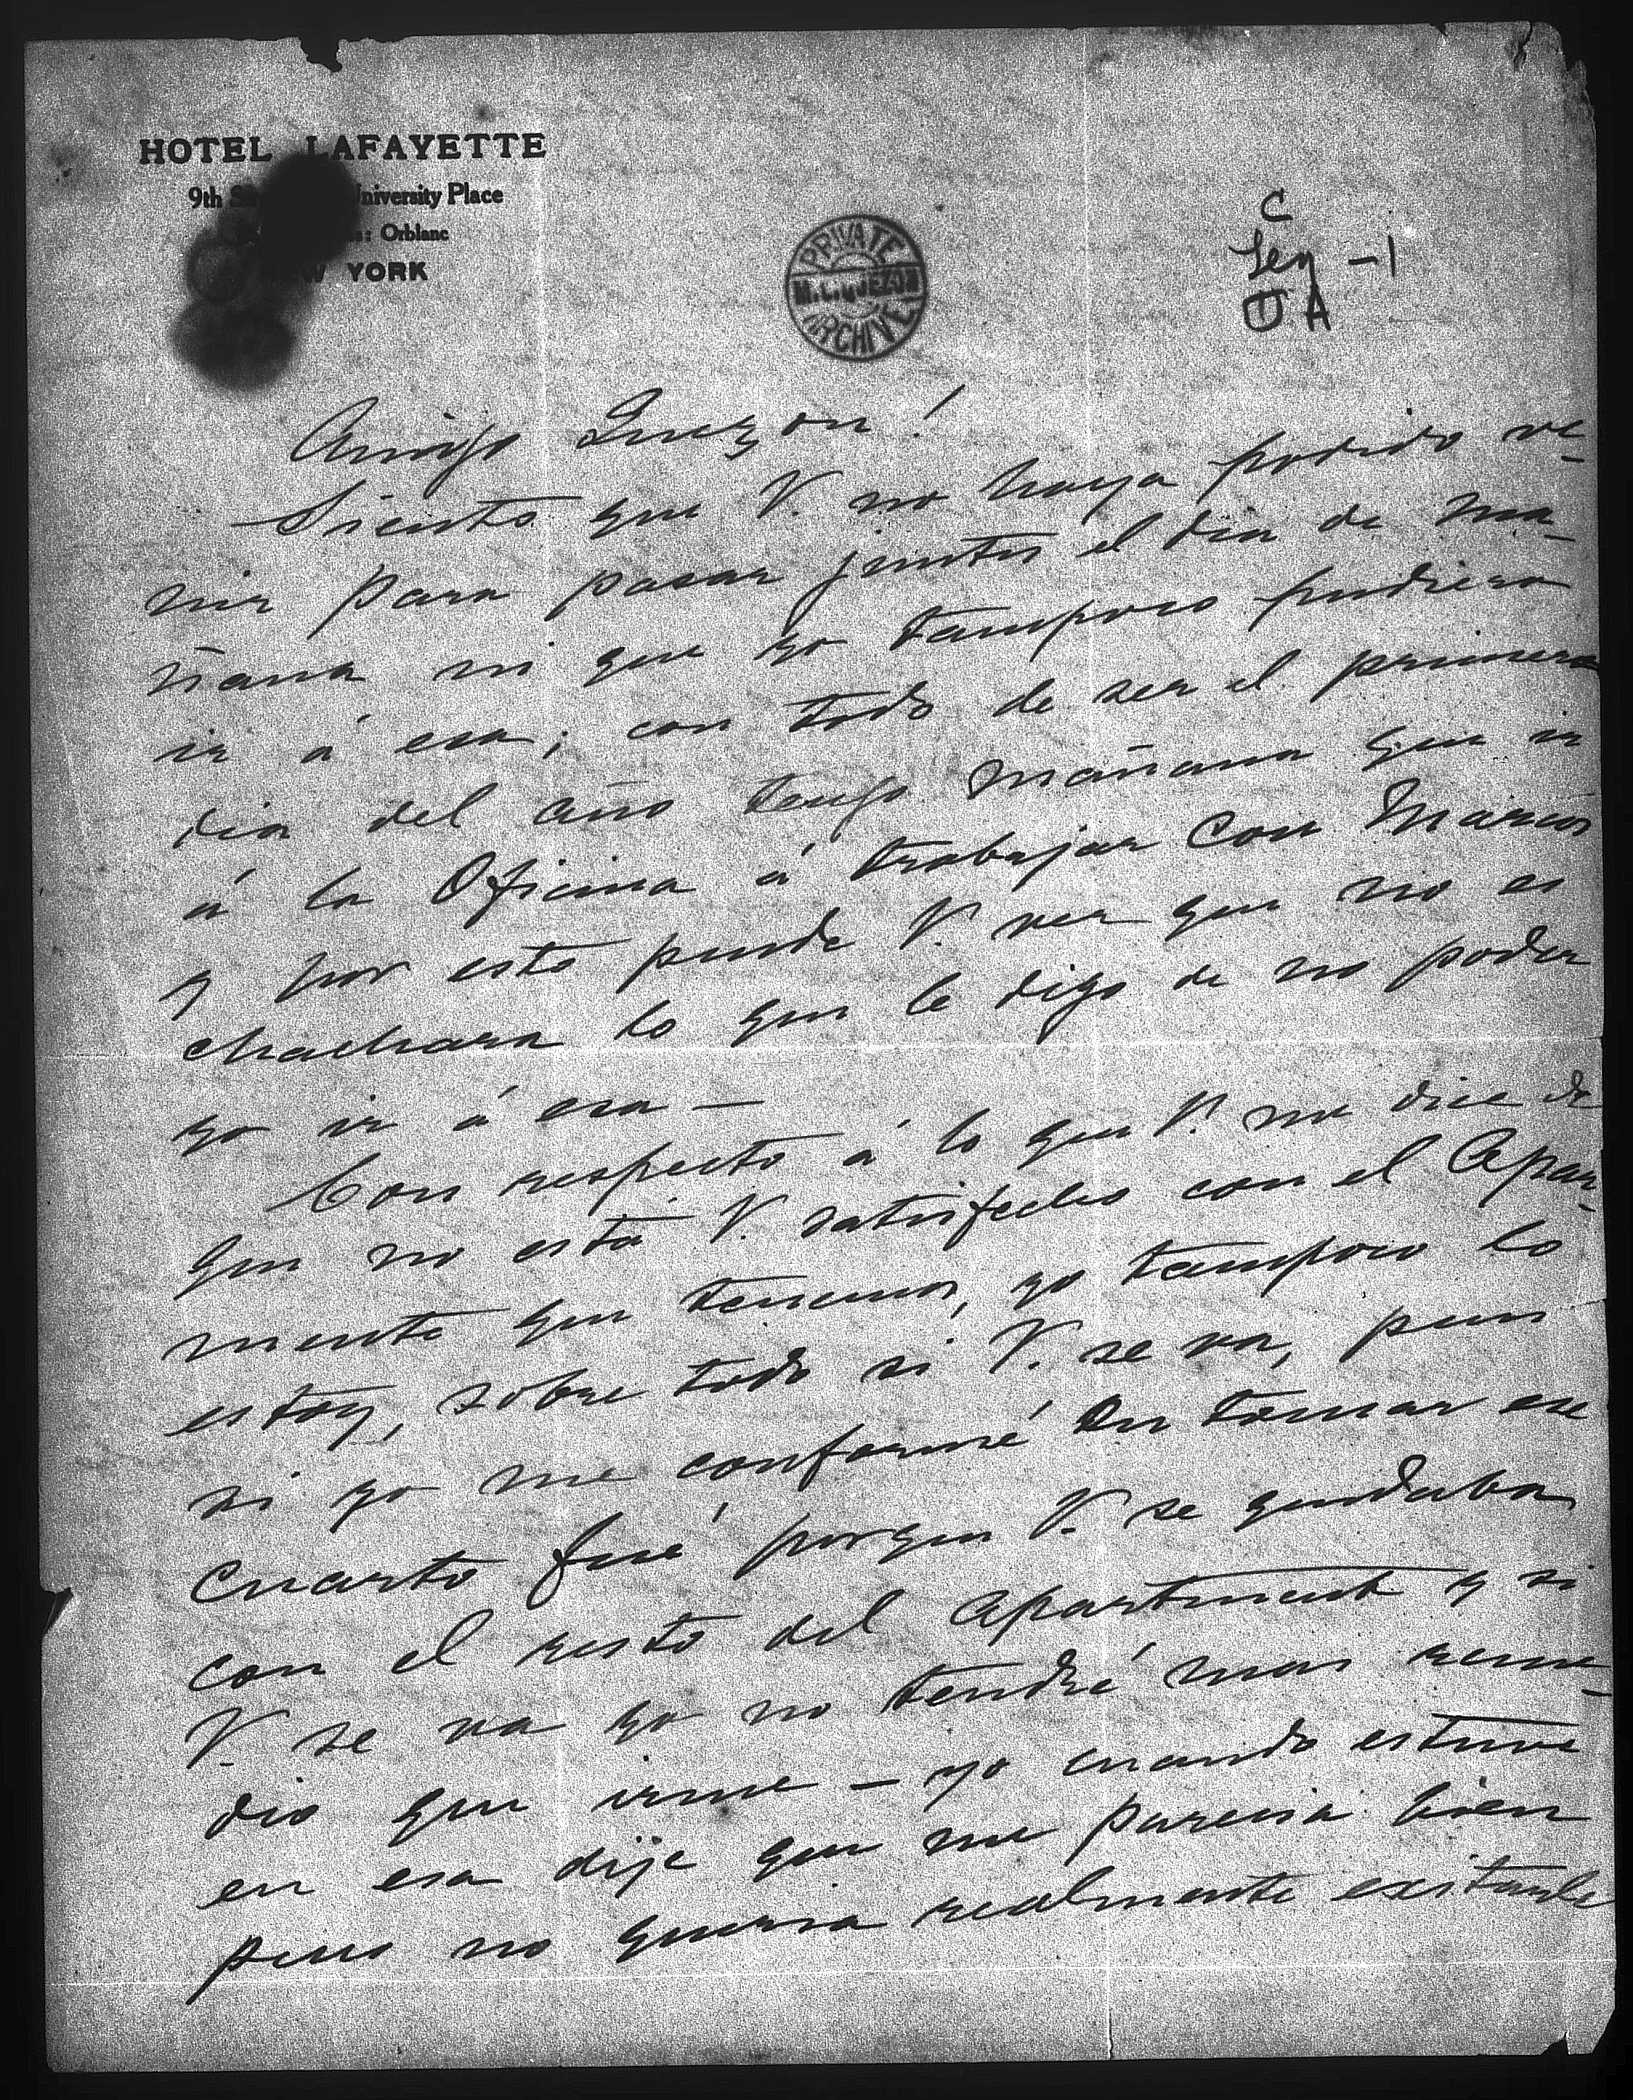 HOTEL LAFAYETTE
9th University Place
: Orblanc
NEW YORK
PRIVATE
M.L. QUEZON
ARCHIVE
C
Gen - 1
U A
Amigo Quezon!
Siento que V. no haya podido ve-
nir para pasar juntos el dia de ma-
ñana ni que yo tampoco pudiera
ir á esa; con todo de ser el primero
dia del año tengo mañana que ir
á la Oficina á trabajar con Marcos
y por esto puede V. ver que no es
chachara lo que le digo de no poder
yo ir á esa —
Con respecto á lo que V. me dice de
que no está V. satisfecho con el Apar-
mento que tenemos, yo tampoco lo
estoy, sobre todo si V. se va, pues
si yo me conformé en tomar ese
cuarto fué porque V. se quedaba
con el resto del apartment y si
V. se va yo no tendré mas reme-
dio que irme — yo cuando estuve
en esa dije que me parecia bien
pero no queria realmente exitarle